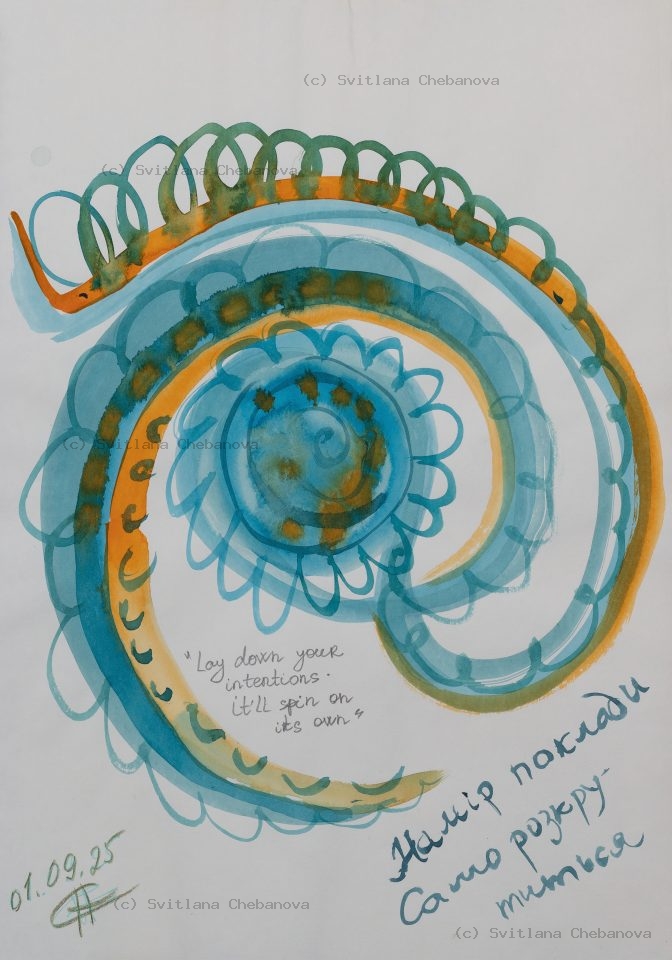 (c) Svitlana Chebanova
(c) Svitlana Chebanova
(c) Svitlana Chebanova
(c) Svitlana Chebanova
"Lay down your
intentions.
it'll spin on
its own"
Намір поклади
Само розкру-
титься
01.09.25
(c) Svitlana Chebanova
(c) Svitlana Chebanova